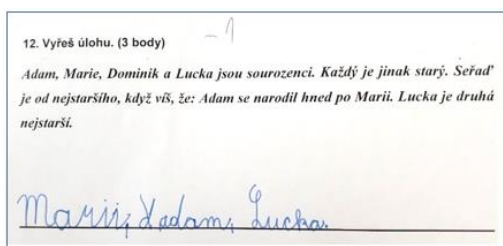 12. Vyřeš úlohu. (3 body) -1
Adam, Marie, Dominik a Lucka jsou sourozenci. Každý je jinak starý. Seřaď
je od nejstaršího, když víš, že: Adam se narodil hned po Marii. Lucka je druhá
nejstarší.
Marii, Hadam, Lucka.